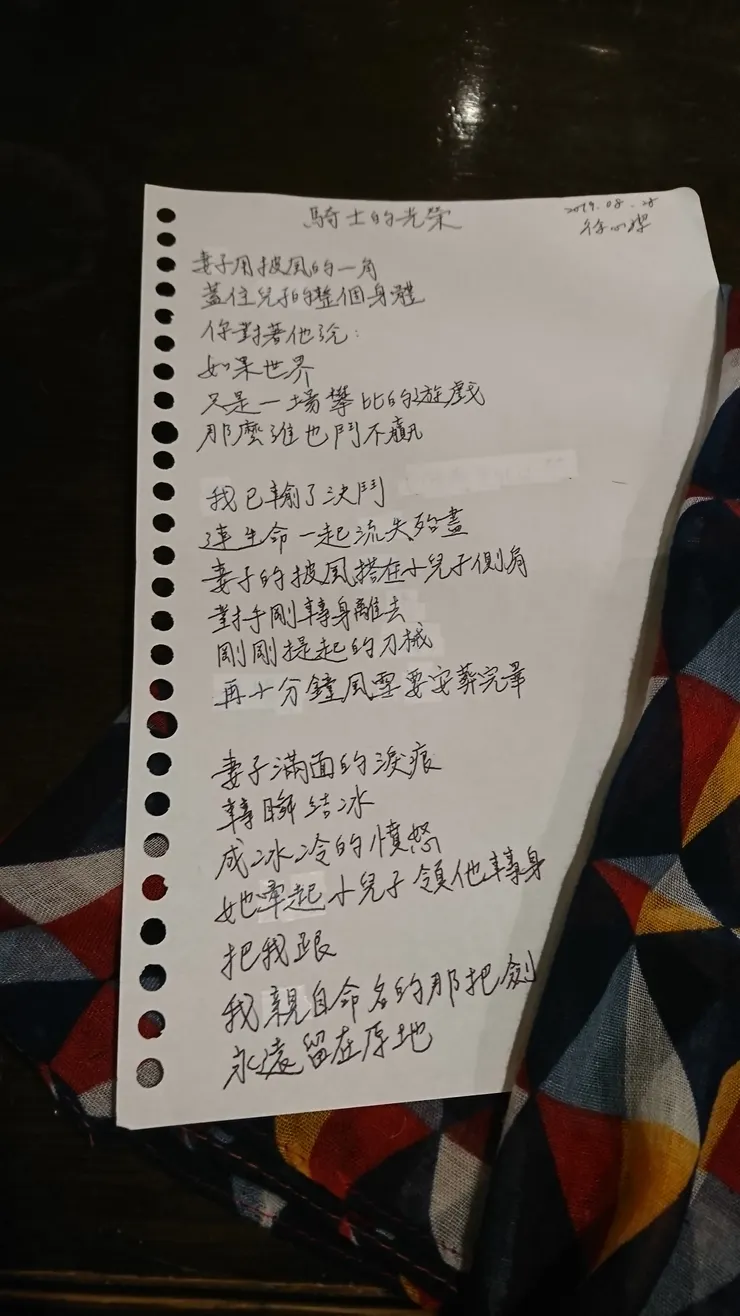 騎士的光榮
2019.08.28
妻子用披風的一角
蓋住兒子的整個身體
你對著他說：
如果世界
只是一場攀比的遊戲
那麼誰也鬥不贏
我已輸了決鬥
連生命一起流失殆盡
妻子的披風搭在小兒子側肩
對手剛轉身離去
剛剛提起的刀械
再十分鐘風雪要安葬完畢
妻子滿面的淚痕
轉瞬結冰
成冰冷的憤怒
她牽起小兒子領他轉身
把我跟
我親自命名的那把劍
永遠留在原地